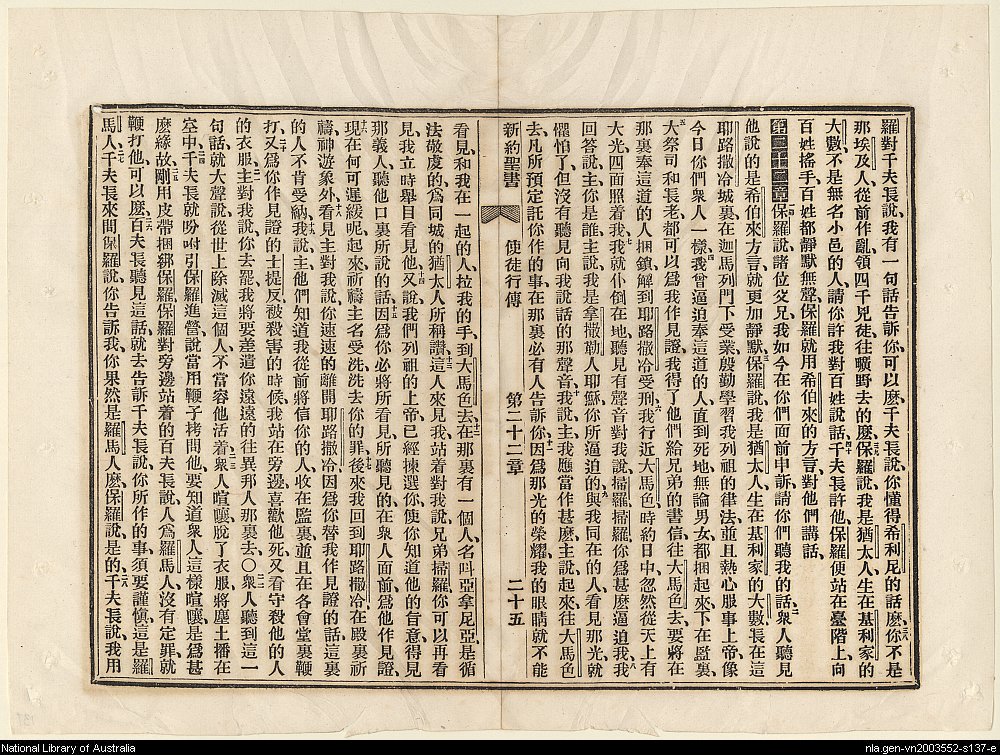 羅對千夫長說、我有一句話告訴你、你可以麽、千夫長說、你懂得希利尼的話麽、你不是
那埃及人、從前作亂、領四千兇徒往曠野去的麽、保羅說、我是猶太人、生在基利家的
大數、不是無名小邑的人、請你許我對百姓說話、千夫長許他、保羅便站在臺階上、向
百姓搖手、百姓都靜默無聲、保羅就用希伯來的方言、對他們講話、
第二十二章 保羅說、諸位父兄、我如今在你們面前申訴、請你們聽我的話、衆人聽見
他說的是希伯來方言、就更加靜默、保羅說、我是猶太人、生在基利家的大數、長在這
耶路撒冷城裏、在迦馬列門下受業、殷勤學習我列祖的律法、並且熱心服事上帝、像
今日你們衆人一樣、我曾逼迫奉這道的人、直到死地、無論男女都捆起來、下在監裏、
大祭司和長老、都可以爲我作見證、我得了他們給兄弟的書信、往大馬色去、要將在
那裏奉這道的人捆鎖、解到耶路撒冷受刑、我行近大馬色、時約日中、忽然從天上有
大光、四面照着我、我就仆倒在地、聽見有聲音對我說、掃羅、掃羅、你爲甚麽逼迫我、我
回答說、主、你是誰、主說、我是拿撒勒人耶穌、你所逼迫的、與我同在的人、看見那光就
懼怕了、但沒有聽見向我說話的那聲音、我說、主、我應當作甚麽、主說、起來、往大馬色
去、凡所預定託你作的事、在那裏必有人告訴你、因爲那光的榮耀、我的眼睛就不能
新約聖書 使徒行傳 第二十二章 二十五
看見、和我在一起的人、拉我的手、到大馬色去、在那裏有一個人、名呌亞拿尼亞、是循
法敬虔的、爲同城的猶太人所稱讚、這人來見我、站着對我說、兄弟掃羅、你可以再看
見、我立時舉目看見他、又說、我們列祖的上帝、已經揀選你、使你知道他的旨意、得見
那義人、聽他口裏所說的話、因爲你必將所看見所聽見的、在衆人面前、爲他作見證、
現在何可遲緩呢、起來祈禱主名受洗、洗去你的罪、後來我回到耶路撒冷、在殿裏祈
禱、神遊象外、看見主對我說、你速速的離開耶路撒冷、因爲你替我作見證的話、這裏
的人不肯受納、我說、主、他們知道我從前將信你的人、收在監裏、並且在各會堂裏鞭
打、又爲你作見證的士提反被殺害的時候、我站在旁邊喜歡他死、又看守殺他的人
的衣服、主對我說、你去罷、我將要差遣你遠遠的往異邦人那裏去、○衆人聽到這一
句話、就大聲說、從世上除滅這個人、不當容他活着、衆人喧嚷、脫了衣服、將塵土播在
空中、千夫長就吩咐引保羅進營、說當用鞭子拷問他、要知道衆人這樣喧嚷、是爲甚
麽緣故、剛用皮帶捆綁保羅、保羅對旁邊站着的百夫長說、人爲羅馬人、沒有定罪、就
鞭打他、可以麽、百夫長聽見這話、就去告訴千夫長說、你所作的事、須要謹愼、這是羅
馬人、千夫長來問保羅說、你告訴我、你果然是羅馬人麽、保羅說、是的、千夫長說、我用
National Library of Australia
nla.gen-vn2003552-s137-e